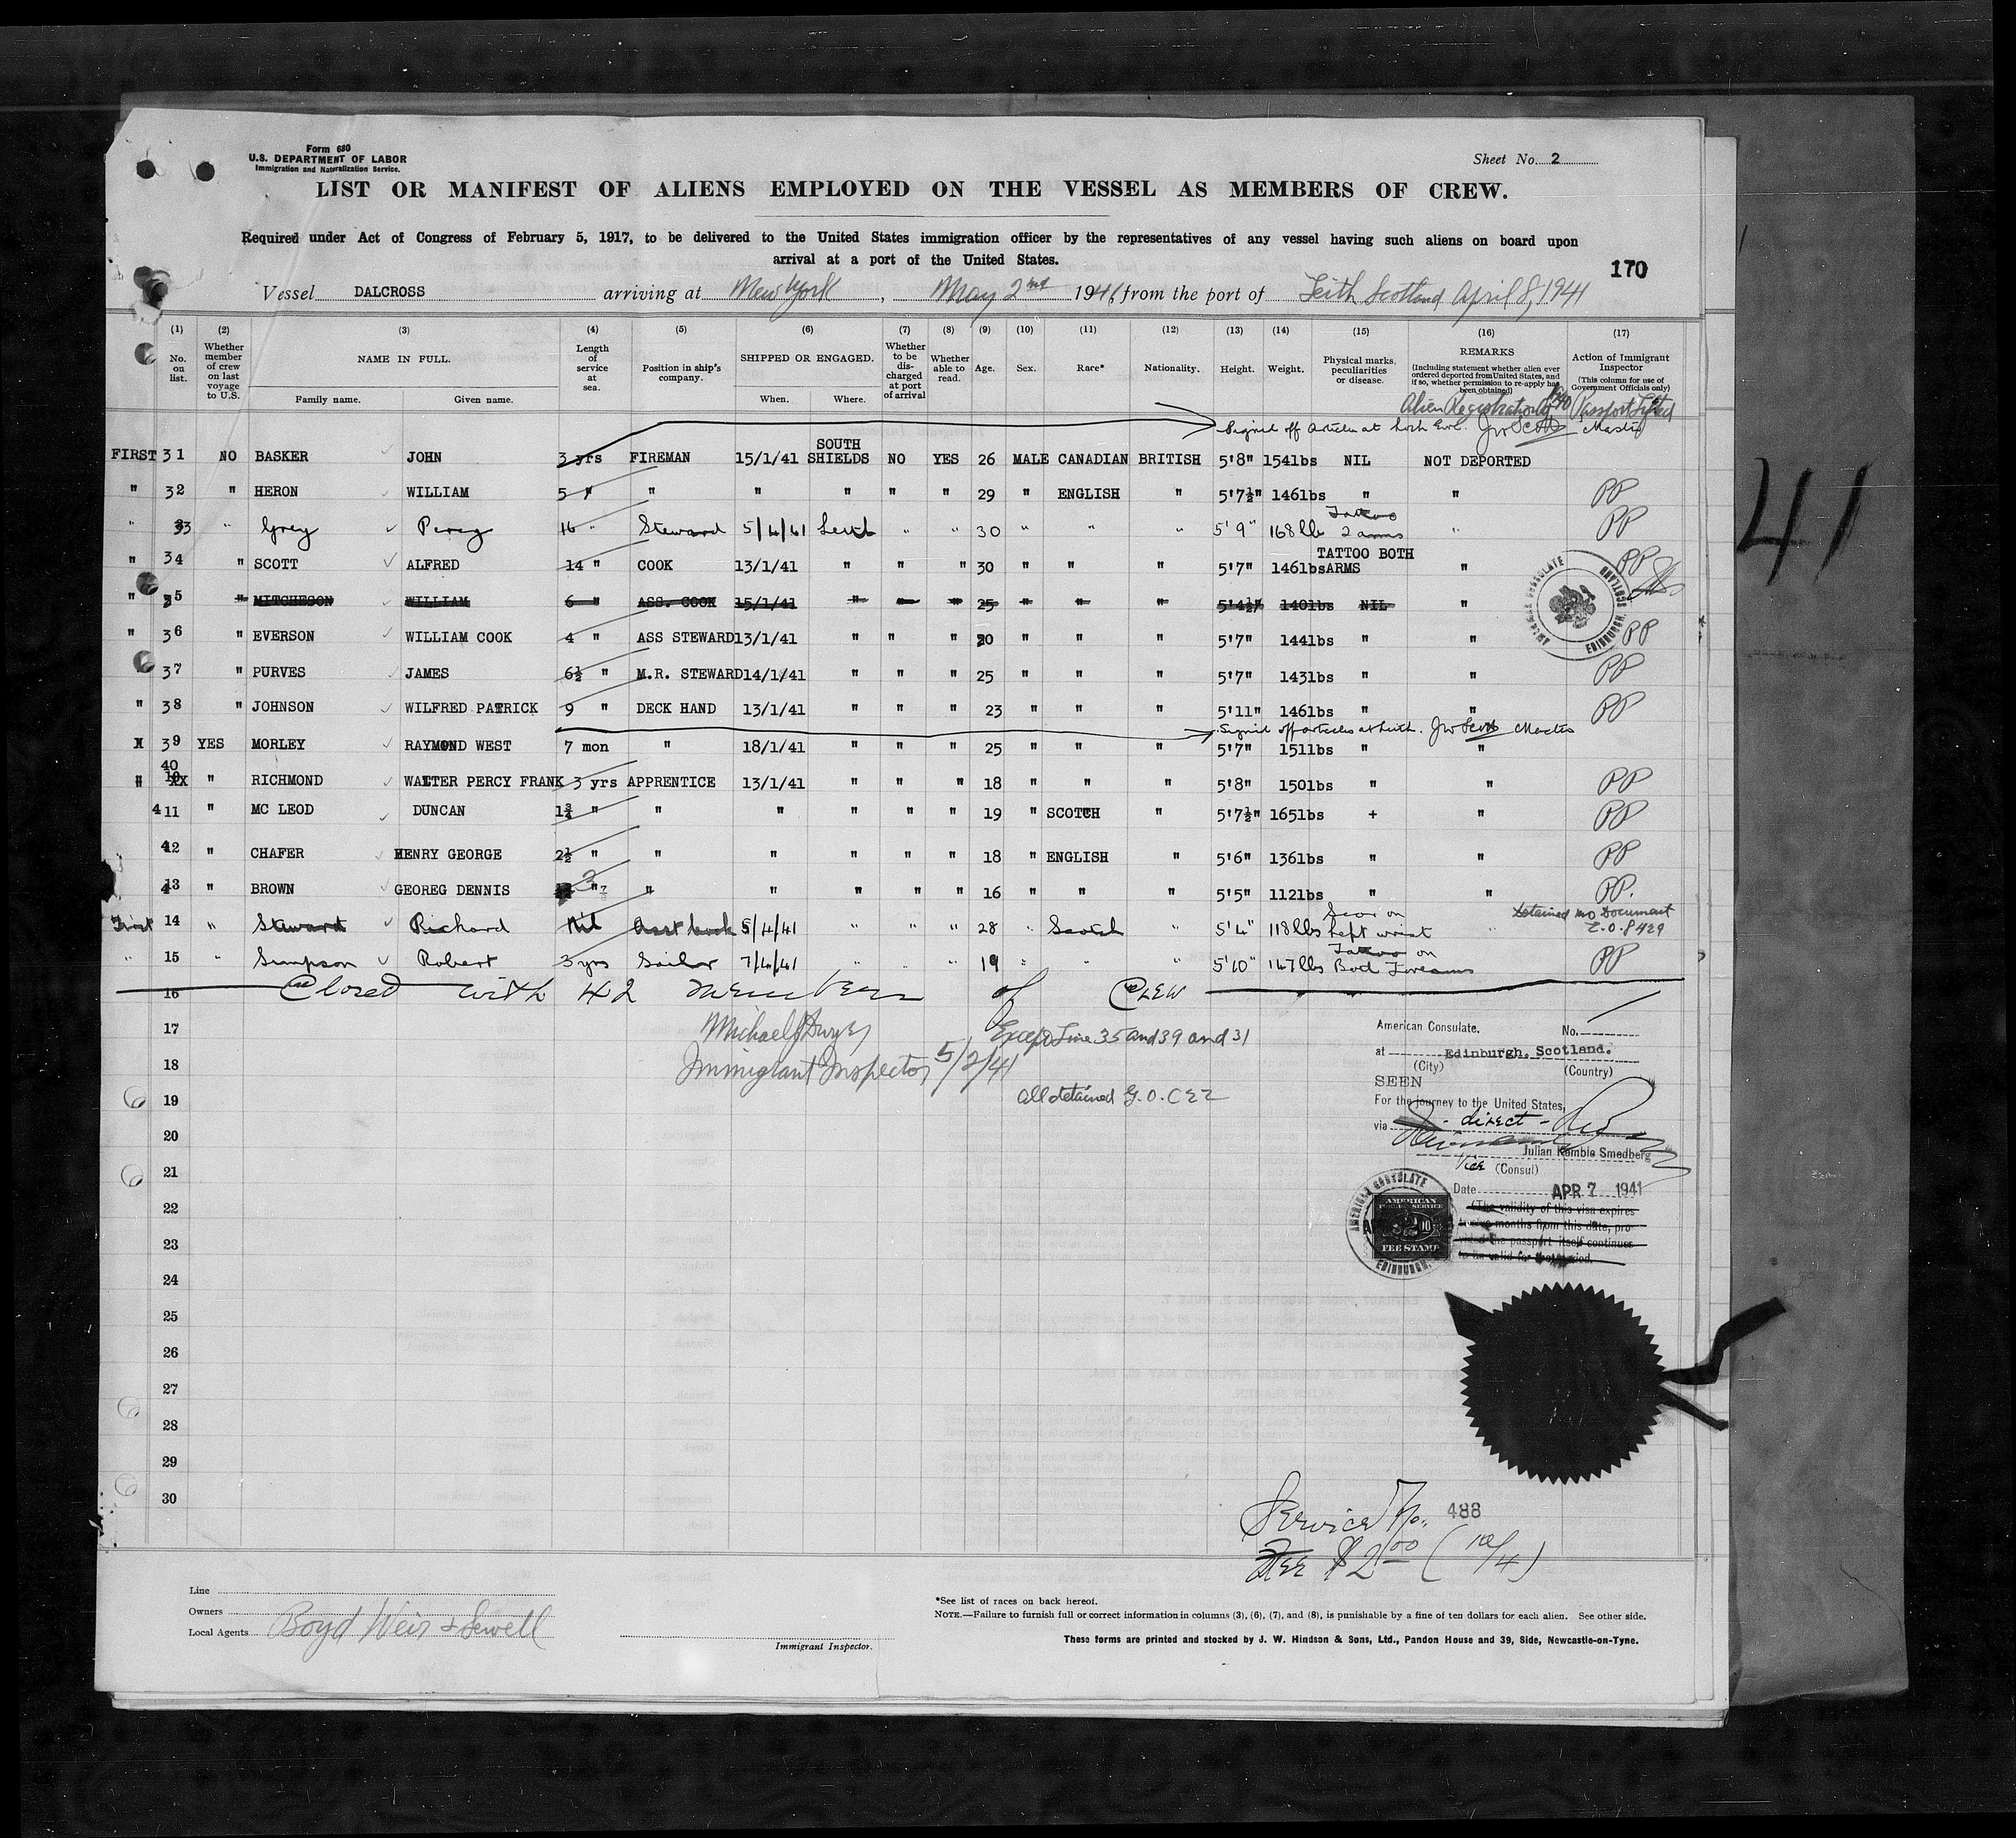 Form 680
U.S. DEPARTMENT OF LABOR
Immigration and Naturalization Service.
Sheet No. 2
LIST OR MANIFEST OF ALIENS EMPLOYED ON THE VESSEL AS MEMBERS OF CREW.
Required under Act of Congress of February 5, 1917, to be delivered to the United States immigration officer by the representatives of any vessel having such aliens on board upon
arrival at a port of the United States.
170
Vessel DALCROSS arriving at New York, May 2nd 1941, from the port of Leith Scotland April 8, 1941
(1) (2) (3) (4) (5) (6) (7) (8) (9) (10) (11) (12) (13) (14) (15) (16) (17)
No. on list. Whether member of crew on last voyage to U.S. NAME IN FULL. Family name. Given name. Length of service at sea. Position in ship's company. SHIPPED OR ENGAGED. When. Where. Whether to be discharged at port of arrival Whether able to read. Age. Sex. Race* Nationality. Height. Weight. Physical marks, peculiarities or disease. REMARKS (Including statement whether alien ever ordered deported from United States, and if so, whether permission to re-apply has been obtained) Action of Immigrant Inspector (This column for use of Government Officials only)
Alien Registration Act 1940 Passport Lifted
Signed off Articles at Loch Ewe. JW Scott Master
FIRST 31 NO BASKER JOHN 3 yrs FIREMAN 15/1/41 SOUTH SHIELDS NO YES 26 MALE CANADIAN BRITISH 5'8" 154lbs NIL NOT DEPORTED
" 32 " HERON WILLIAM 5 " " " " " " 29 " ENGLISH " 5'7½" 146lbs " " PP
" 33 " Grey Percy 16 " Steward 5/4/41 Leith " " 30 " " " 5'9" 168 lbs Tattoo 2 arms " PP
" 34 " SCOTT ALFRED 14 " COOK 13/1/41 " " " 30 " " " 5'7" 146lbs TATTOO BOTH ARMS " PP
" 35 " MITCHESON WILLIAM 6 " ASS. COOK 15/1/41 " " " 25 " " " 5'4½" 140lbs NIL "
" 36 " EVERSON WILLIAM COOK 4 " ASS STEWARD 13/1/41 " " " 20 " " " 5'7" 144lbs " " PP
" 37 " PURVES JAMES 6½ " M.R. STEWARD 14/1/41 " " " 25 " " " 5'7" 143lbs " " PP
" 38 " JOHNSON WILFRED PATRICK 9 " DECK HAND 13/1/41 " " " 23 " " " 5'11" 146lbs " " PP
Signed off articles at Leith. JW Scott Master
39 YES MORLEY RAYMOND WEST 7 mon " 18/1/41 " " " 25 " " " 5'7" 151lbs " "
40 " RICHMOND WALTER PERCY FRANK 3 yrs APPRENTICE 13/1/41 " " " 18 " " " 5'8" 150lbs " " PP
411 " MC LEOD DUNCAN 1¾ " " " " " " 19 " SCOTCH " 5'7½" 165lbs + " PP
412 " CHAFER HENRY GEORGE 2½ " " " " " " 18 " ENGLISH " 5'6" 136lbs " " PP
413 " BROWN GEOREG DENNIS 3 " " " " " " 16 " " " 5'5" 112lbs " " PP.
First 14 " Steward Richard Nil Asst Cook 5/4/41 " " " 28 " Scotch " 5'4" 118 lbs Scar on Left wrist " Detained no Document E.O. 8429
" 15 " Simpson Robert 3 yrs Sailor 7/4/41 " " " 19 " " " 5'10" 147 lbs Tattoo on Both Forearms PP
16 Closed with 42 members of Crew
17 Michael J Dwyer Except Line 35 and 39 and 31
18 Immigrant Inspector 5/2/41
19 All detained G.O. C 22
20
21
22
23
24
25
26
27
28
29
30
AMERICAN CONSULATE
EDINBURGH, SCOTLAND
American Consulate. No.
at Edinburgh, Scotland.
(City) (Country)
SEEN
For the journey to the United States,
via - direct -
Julian Kemble Smedberg
Vice (Consul)
Date APR 7 1941
(The validity of this visa expires
twelve months from this date, pro-
vided the passport itself continues
to be valid for that period.
AMERICAN CONSULATE
AMERICAN
FOREIGN SERVICE
$2.00
FEE STAMP
EDINBURGH
Service No. 488
Fee $2.00 (10/4)
41
Line
Owners
Local Agents Boyd Weir & Sewell
Immigrant Inspector.
*See list of races on back hereof.
NOTE.—Failure to furnish full or correct information in columns (3), (6), (7), and (8), is punishable by a fine of ten dollars for each alien. See other side.
These forms are printed and stocked by J. W. Hindson & Sons, Ltd., Pandon House and 39, Side, Newcastle-on-Tyne.